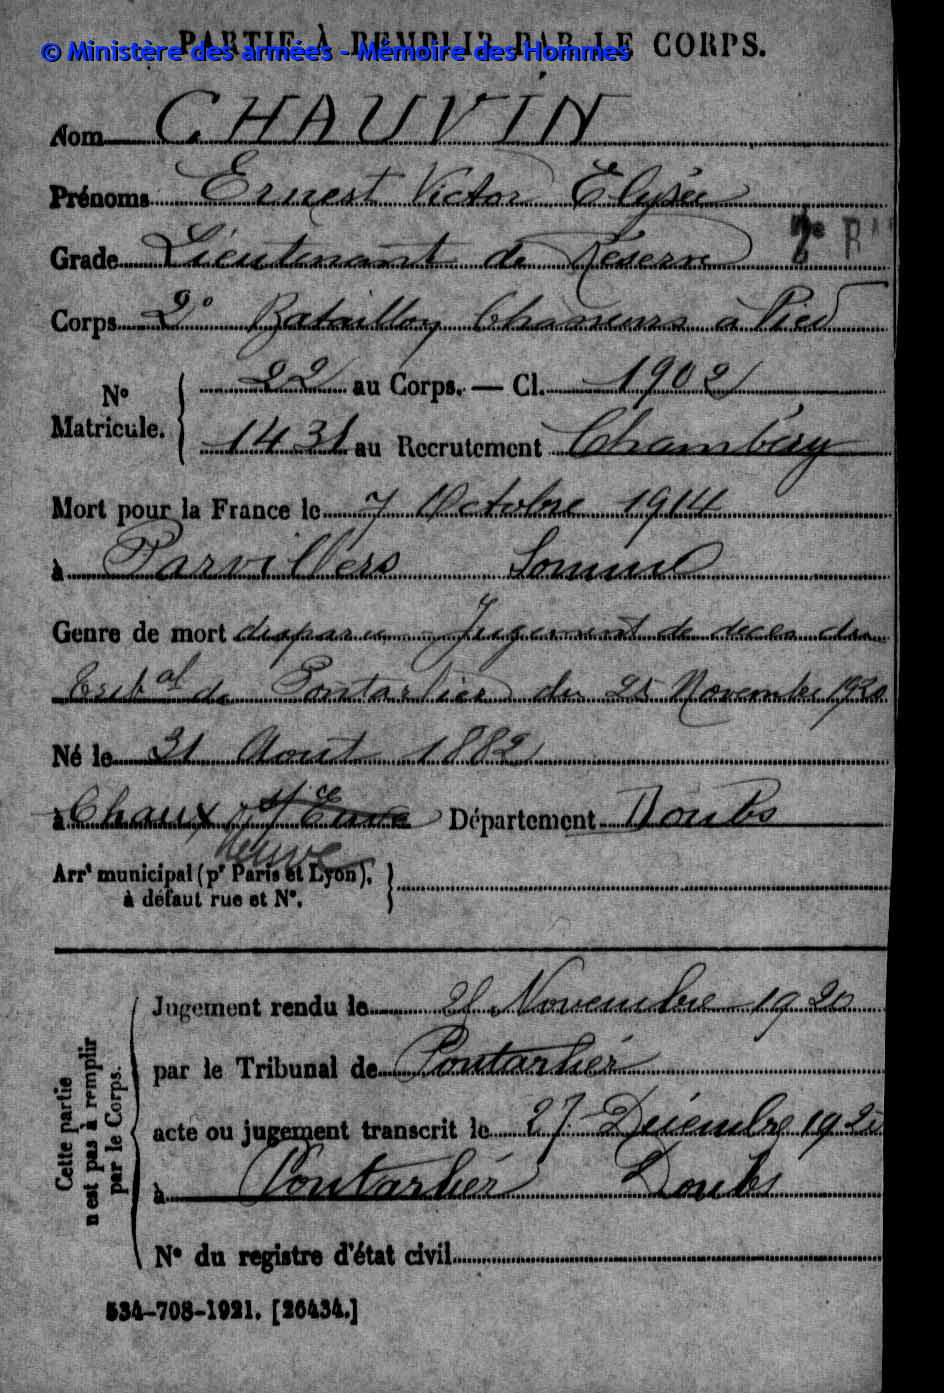 PARTIE À REMPLIR PAR LE CORPS.
© Ministère des armées - Mémoire des Hommes
Nom CHAUVIN
Prénoms Ernest Victor Elysée
Grade Lieutenant de Réserve 2e BA
Corps 2e Bataillon Chasseurs à Pied
N° Matricule. 22 au Corps. — Cl. 1902
1431 au Recrutement Chambéry
Mort pour la France le 7 Octobre 1914
à Parvillers Somme
Genre de mort disparu Jugement de décès du
Tribal de Pontarlier du 25 Novembre 1920
Né le 31 Aout 1882
à Chaux Département Doubs
Neuve
Arrt municipal (pr Paris et Lyon),
à défaut rue et N°.
Jugement rendu le 25 Novembre 1920
par le Tribunal de Pontarlier
acte ou jugement transcrit le 27 Décembre 1920
à Pontarlier Doubs
N° du registre d'état civil
Cette partie
n'est pas à remplir
par le Corps.
534-708-1921. [26434.]